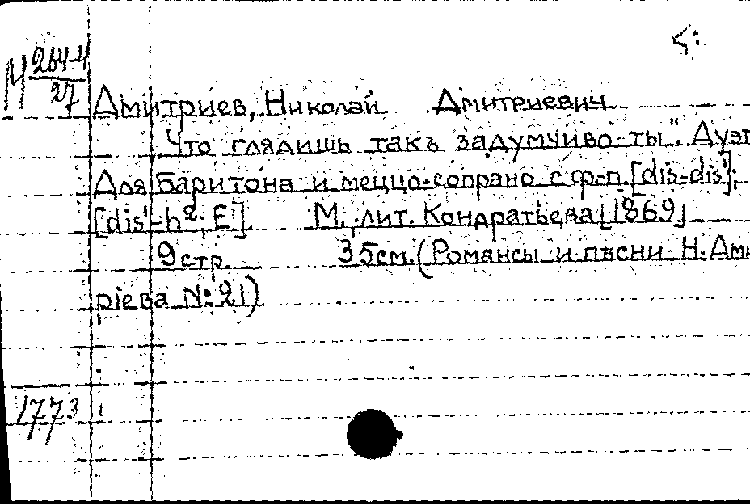 М 264-4
27
Дмитриев, Николай Дмитриевич
"Что глядишь такъ задумчиво ты". Дуэт
Для баритона и меццо-сопрано с ф-п. [dis-dis';
[dis'-h²; E] М., лит. Кондратьева [1869]
9 стр. 35см. (Романсы и пѣсни Н. Дми
ріева №: 21)
1773